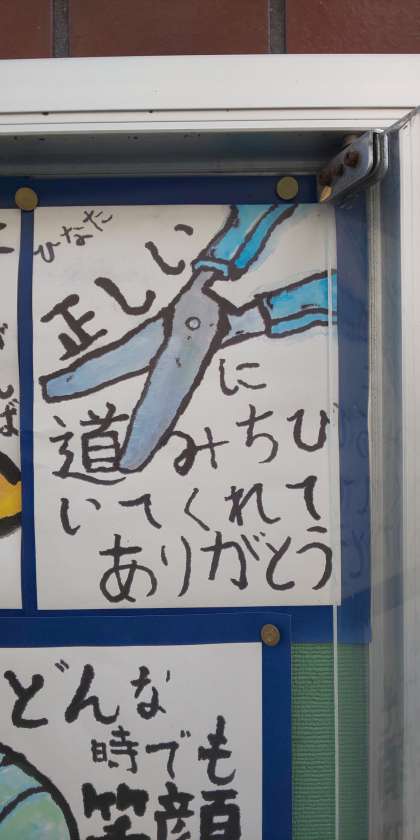 ひなた
正しい
道
に
みちび
いてくれて
ありがとう
どんな
時でも
笑顔